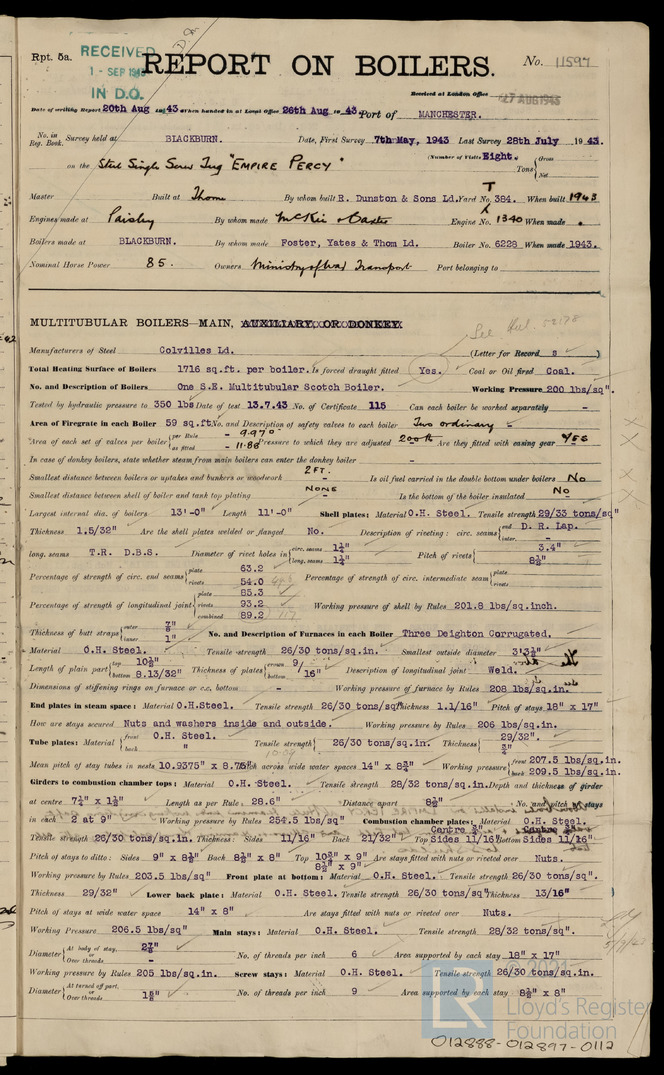 Rpt. 5a.
RECEIVED
1 - SEP 1943
IN D.O.
D.O.
REPORT ON BOILERS.
No. 11597
Received at London Office 27 AUG 1943
Date of writing Report 20th Aug 1943 When handed in at Local Office 26th Aug 1943. Port of MANCHESTER.
No. in Reg. Book. Survey held at BLACKBURN. Date, First Survey 7th May, 1943 Last Survey 28th July 1943.
(Number of Visits Eight.)
on the Steel Single Screw Tug "EMPIRE PERCY" Tons { Gross Net
Master Built at Thorne By whom built R. Dunston & Sons Ld. Yard No. T 384. When built 1943
Engines made at Paisley By whom made McKie & Baxter Engine No. 1340 When made
Boilers made at BLACKBURN. By whom made Foster, Yates & Thom Ld. Boiler No. 6228 When made 1943.
Nominal Horse Power 85. Owners Ministry of War Transport Port belonging to
MULTITUBULAR BOILERS—MAIN, AUXILIARY, OR DONKEY.
Manufacturers of Steel Colvilles Ld. (Letter for Record S)
Total Heating Surface of Boilers 1716 sq.ft. per boiler. Is forced draught fitted Yes. Coal or Oil fired Coal.
No. and Description of Boilers One S.E. Multitubular Scotch Boiler. Working Pressure 200 lbs/sq".
Tested by hydraulic pressure to 350 lbs Date of test 13.7.43 No. of Certificate 115 Can each boiler be worked separately -
Area of Firegrate in each Boiler 59 sq.ft. No. and Description of safety valves to each boiler Two ordinary -
Area of each set of valves per boiler { per Rule - 9.970 as fitted - 11.88 Pressure to which they are adjusted 200 lb Are they fitted with easing gear YES
In case of donkey boilers, state whether steam from main boilers can enter the donkey boiler -
Smallest distance between boilers or uptakes and bunkers or woodwork 2 FT. Is oil fuel carried in the double bottom under boilers No
Smallest distance between shell of boiler and tank top plating NONE Is the bottom of the boiler insulated No
Largest internal dia. of boilers 13'-0" Length 11'-0" Shell plates: Material O.H. Steel. Tensile strength 29/33 tons/sq"
Thickness 1.5/32" Are the shell plates welded or flanged No. Description of riveting: circ. seams { end D. R. Lap. inter. -
long. seams T.R. D.B.S. Diameter of rivet holes in { circ. seams 1¼" long. seams 1¼" Pitch of rivets { 3.4" 8½"
Percentage of strength of circ. end seams { plate 63.2 rivets 54.0 Percentage of strength of circ. intermediate seam { plate rivets
Percentage of strength of longitudinal joint { plate 85.3 rivets 93.2 combined 89.2 Working pressure of shell by Rules 201.8 lbs/sq.inch.
Thickness of butt straps { outer ⅞" inner 1" No. and Description of Furnaces in each Boiler Three Deighton Corrugated.
Material O.H. Steel. Tensile strength 26/30 tons/sq.in. Smallest outside diameter 3'3½"
Length of plain part { top 10½" bottom 8.13/32" Thickness of plates { crown bottom 9/16" Description of longitudinal joint Weld.
Dimensions of stiffening rings on furnace or c.c. bottom - Working pressure of furnace by Rules 208 lbs/sq.in.
End plates in steam space: Material O.H.Steel. Tensile strength 26/30 tons/sq" Thickness 1.1/16" Pitch of stays 18" x 17"
How are stays secured Nuts and washers inside and outside. Working pressure by Rules 206 lbs/sq.in.
Tube plates: Material { front O.H. Steel. back " Tensile strength { 26/30 tons/sq.in. Thickness { 29/32". ¾"
Mean pitch of stay tubes in nests 10.9375" x 8.75" Pitch across wide water spaces 14" x 8¾" Working pressure { front 207.5 lbs/sq.in. back 209.5 lbs/sq.in.
Girders to combustion chamber tops: Material O.H. Steel. Tensile strength 28/32 tons/sq.in. Depth and thickness of girder
at centre 7¼" x 1¾" Length as per Rule 28.6" Distance apart 8½" No. and pitch of stays
in each 2 at 9" Working pressure by Rules 254.5 lbs/sq" Combustion chamber plates: Material O.H. Steel.
Tensile strength 26/30 tons/sq.in. Thickness: Sides 11/16" Back 21/32" Top Sides 11/16" Bottom Sides 11/16"
Pitch of stays to ditto: Sides 9" x 8¾" Back 8½" x 8" Top 10⅜" x 9" 8½" x 9" Are stays fitted with nuts or riveted over Nuts.
Working pressure by Rules 203.5 lbs/sq" Front plate at bottom: Material O.H. Steel. Tensile strength 26/30 tons/sq".
Thickness 29/32" Lower back plate: Material O.H. Steel. Tensile strength 26/30 tons/sq" Thickness 13/16"
Pitch of stays at wide water space 14" x 8" Are stays fitted with nuts or riveted over Nuts.
Working Pressure 206.5 lbs/sq" Main stays: Material O.H. Steel. Tensile strength 28/32 tons/sq".
Diameter { At body of stay, 2⅞" or Over threads - No. of threads per inch 6 Area supported by each stay 18" x 17"
Working pressure by Rules 205 lbs/sq.in. Screw stays: Material O.H. Steel. Tensile strength 26/30 tons/sq.in.
Diameter { At turned off part, or Over threads 1⅝" No. of threads per inch 9 Area supported by each stay 8½" x 8"
© 2021
Lloyd's Register
Foundation
012888-012897-0112